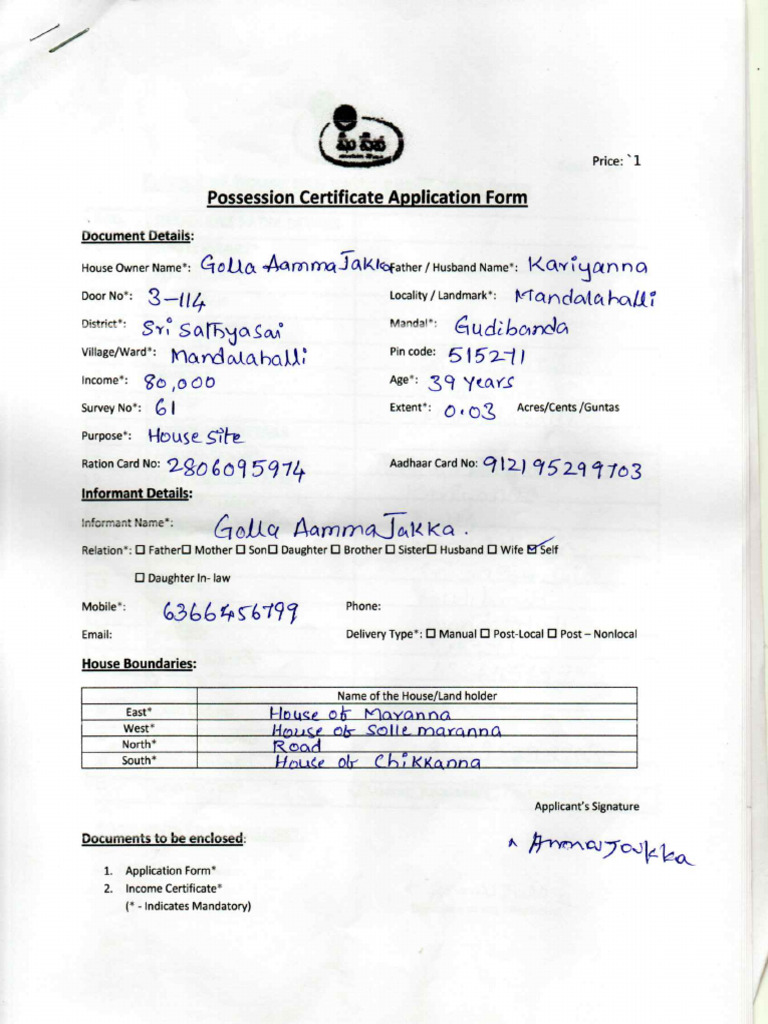 మీ సేవ
Price: `1
Possession Certificate Application Form
Document Details:
House Owner Name*: Golla Aamma Jakka Father / Husband Name*: Kariyanna
Door No*: 3-114 Locality / Landmark*: Mandalahalli
District*: Sri Sathyasai Mandal*: Gudibanda
Village/Ward*: Mandalahalli Pin code: 515271
Income*: 80,000 Age*: 39 years
Survey No*: 61 Extent*: 0.03 Acres/Cents /Guntas
Purpose*: House site
Ration Card No: 2806095974 Aadhaar Card No: 912195299703
Informant Details:
Informant Name*: Golla Aamma Jakka.
Relation*: ☐ Father☐ Mother ☐ Son☐ Daughter ☐ Brother ☐ Sister☐ Husband ☐ Wife ☑ Self
☐ Daughter In- law
Mobile*: 6366456799 Phone:
Email: Delivery Type*: ☐ Manual ☐ Post-Local ☐ Post – Nonlocal
House Boundaries:
Name of the House/Land holder
East* House of Maranna
West* House of Solle maranna
North* Road
South* House of Chikkanna
Applicant's Signature
Documents to be enclosed:
Amma Jakka
1. Application Form*
2. Income Certificate*
(* - Indicates Mandatory)